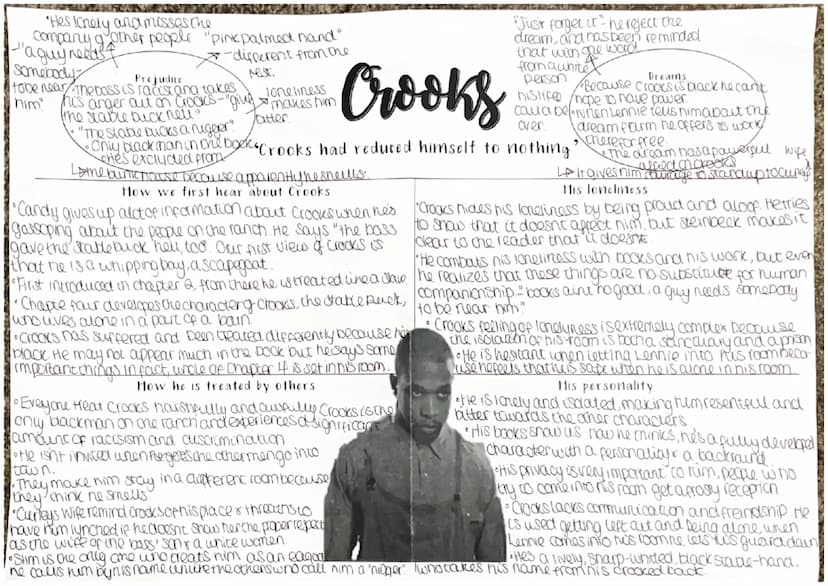 "He's lonely and misses the
company of other people
- "a guy needs
somebody-
to be near
him"
"pink palmed hand"
- different from the
rest.
loneliness
makes him
bitter.
Prejudice
• The boss is racist and takes
his anger out on Crooks - "give
the stable buck hell"
• "The stable bucks a nigger"
• Only black man in the book
• He's excluded from
↳ the bunk house because apparently he smells.
Crooks
'Crooks had reduced himself to nothing'
"Just forget it" he reject the
dream, and has been reminded
that with one word
from a white
person
his life
could be
over.
Dreams
• Because Crooks is black he can't
hope to have power.
• When Lennie tells him about the
dream farm he offers to work
there for free
• The dream has a powerful
affect on Crooks
↳ It gives him courage to stand up to Curleys
wife
How we first hear about Crooks
• Candy gives up alot of information about Crooks when he's
gossoping about the people on the ranch. He says "the boss
gave the stable buck hell, too" Our first view of Crooks is
that he is a whipping boy, a scapegoat.
• First introduced in chapter 2, from there he is treated like a slave
• Chapter four developes the character of Crooks, the stable buck,
who lives alone in a part of a barn.
• Crooks has suffered and been treated differently because he's
black. He may not appear much in the book but he says some
important things in fact, whole of Chapter 4 is set in his room.
His loneliness
• Crooks hides his loneliness by being proud and aloof. He tries
to show that it doesnt affect him, but steinbeck makes it
clear to the reader that it doesnt.
• He combats his loneliness with books and his work, but even
he realizes that these things are no substitute for human
companionship - "books aint no good, a guy needs somebody
to be near him".
• Crooks feeling of loneliness is extremely complex because
the isolation of his room is both a sanctuary and a prison
• He is hesitant when letting Lennie into his room beca-
use he feels that he is safe when he is alone in his room
How he is treated by others
• Everyone treat Crooks harshfully and awfully Crooks is the
only black man on the ranch and experiences a significant
amount of racisism and discrimination
• He isnt invited when he sees the other men go into
town.
• They make him stay in a different room because
they think he smells
• Curleys wife remind crooks of his place & threatns to
have him lynched if he doesnt show her the proper respect
as the wife of the boss' son & a white women
• Slim is the only one who treats him as an eaqual
he calls him by his name unlike the others who call him a "nigger"
His personality
• He is lonely and isolated, making him resentful and
bitter towards the other characters
• His books show us how he thinks, he's a fully developed
character with a personality & a backround
• His privacy is very important to him, people who
try to come into his room get a frosty reception
• Crooks lacks communication and freindship. He
is used getting left out and being alone, when
Lennie comes into his room he lets his guard down
• He's a lively, sharp-whitted, black stable-hand.
who takes his name from his crooked back